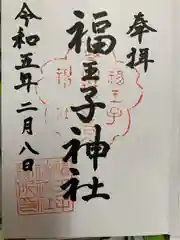 奉拝
福王子神社
令和五年二月八日